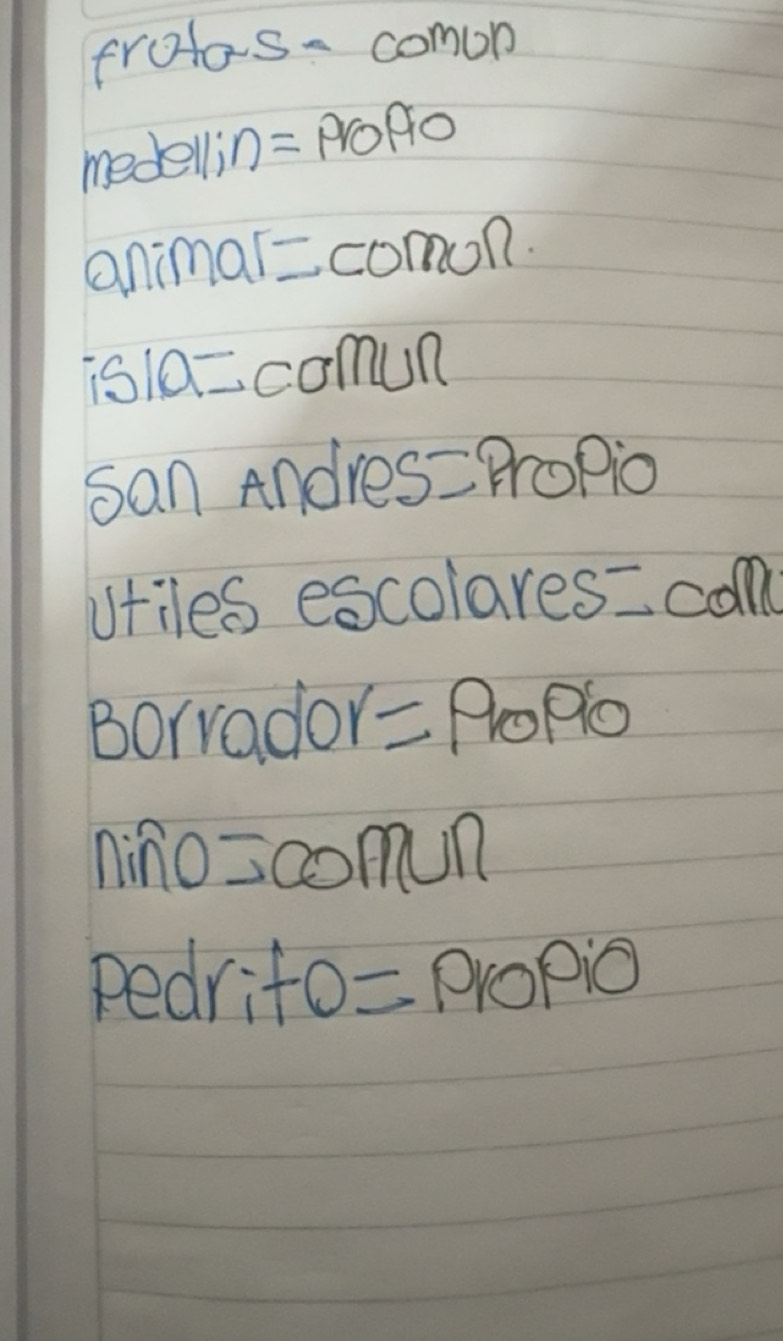 frutas = comun
medellin = propio
animal = comun.
isla = comun
San Andres = Propio
utiles escolares = com
Borrador = Propio
niño = comun
pedrito = propio